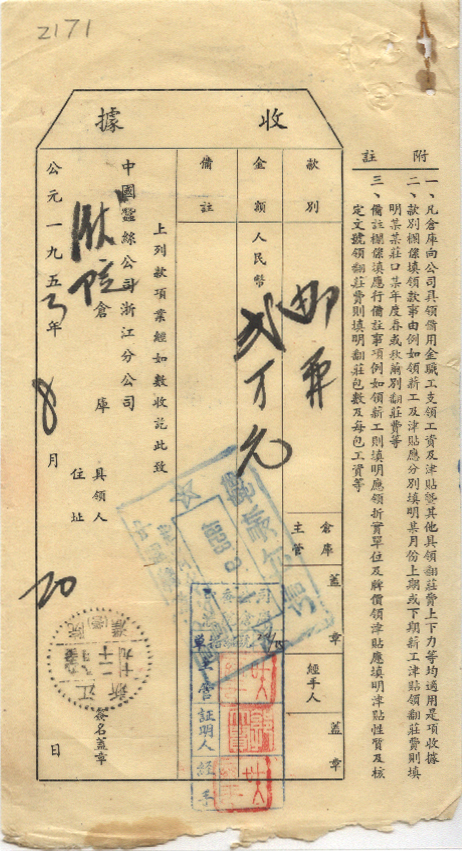 2171
收據
附註
一、凡倉庫向公司具領備用金職工支領工資及津貼暨其他具領翻莊費上下力等均適用是項收據
二、款別欄係填領款事由例如領新工及津貼應分別填明某月份上期或下期薪工津貼領翻莊費則填
明某某莊口某年度春或秋繭別翻莊費等
三、備註欄係填應行備註事項例如領薪工則填明應領折實單位及牌價領津貼應填明津貼性質及核
定文號領翻莊費則填明翻莊包數及每包工資等
款別
倉庫主管
蓋章
經手人
蓋章
金額
人民幣
弍万元
備註
上列款項業經如數收訖此致
中國蠶絲公司浙江分公司
倉庫
具領人
住址
簽名蓋章
公元一九五3年8月20日
主管
証明人
經手
浙江